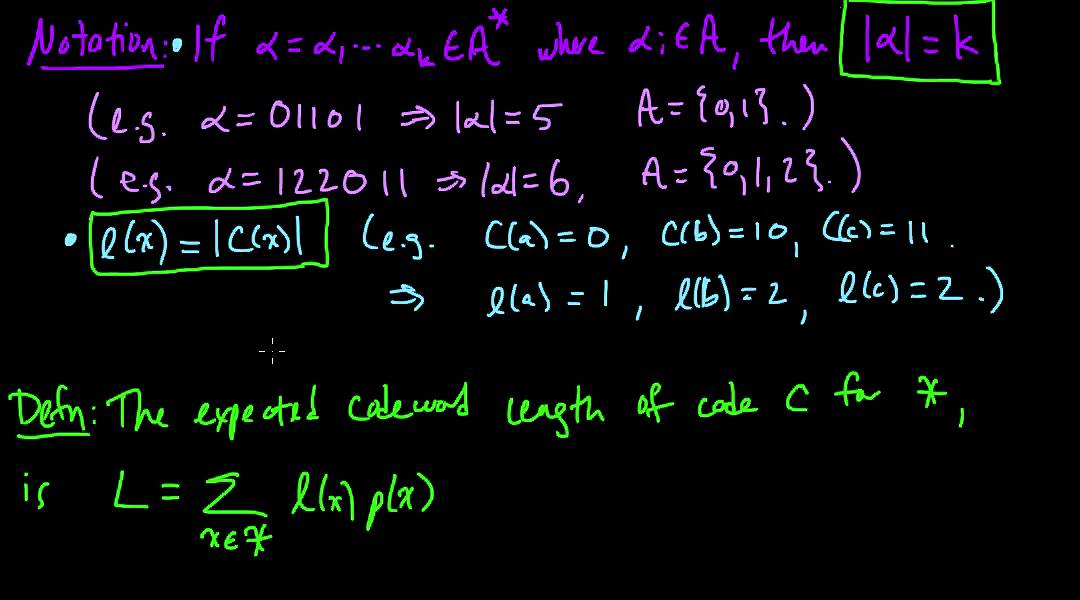 Notation: • If α = α₁ ⋯ αₖ ∈ A* where αᵢ ∈ A, then |α| = k
(e.g. α = 01101 ⇒ |α| = 5 A = {0,1}.)
(e.g. α = 122011 ⇒ |α| = 6, A = {0,1,2}.)
• l(x) = |C(x)| (e.g. C(a) = 0, C(b) = 10, C(c) = 11.
⇒ l(a) = 1, l(b) = 2, l(c) = 2.)
Defn: The expected codeword length of code C for 𝒳,
is L = ∑ l(x) p(x)
x ∈ 𝒳